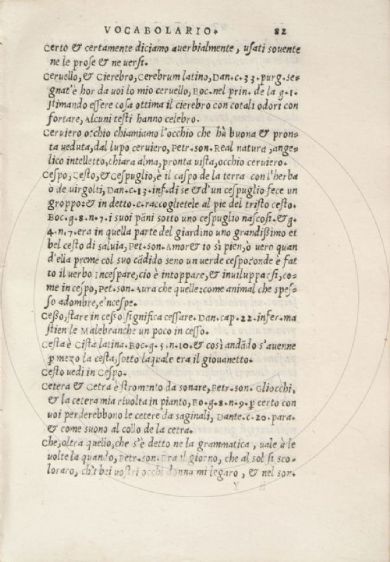 VOCABOLARIO. 82
Certo & certamente diciamo auerbialmente, usati souente
ne le prose & ne uersi.
Ceruello, & Cierebro, Cerebrum latino, Dan.c.33.purg.se-
gnat'è hor da voi lo mio ceruello, Boc.nel prin. de la g.1.
stimando essere cosa ottima il cierebro con cotali odori con
fortare, Alcuni testi hanno celebro.
Ceruiero occhio chiamiamo l'occhio che hà buona & pron
ta veduta, dal lupo ceruiero, Petr.son. Real natura, ange-
lico intelletto, chiara alma, pronta vista, occhio ceruiero.
Cespo, Cesto, & Cespuglio, è il cespo de la terra con l'herba
ò de uirgolti, Dan.c.13.inf.di se & d'un cespuglio fece un
groppo: & in detto.c.raccoglietele al pie del tristo cesto.
Boc.g.8.n.7.i suoi pãni sotto uno cespuglio nascosi. & g.
4.n.7.era in quella parte del giardino uno grandissimo et
bel cesto di saluia, Pet.son. Amor & io sì pien, ò uero quan
d'ella preme col suo cãdido seno un uerde cespo, onde è fat
to il uerbo incespare, cio è intoppare, & inuilupparsi, co-
me in cespo, Pet.son. Aura che quelle: come animal che spes-
so adombre, e'ncespe.
Cesso, stare in cesso significa cessare. Dan.cap.22.infer.ma
stien le Malebranche un poco in cesso.
Cesta è Cista latina. Boc.g.5.n.10. & così andãdo s'auenne
p mezo la cesta, sotto laquale era il giouanetto.
Cesto uedi in Cespo.
Cetera & Cetra è strom̃to da sonare, Petr.son. Gliocchi,
& la cetera mia riuolta in pianto, Bo.g.8.n.9.p certo con
voi perderebbono le cetere da saginali, Dante.c.20.para.
& come suono al collo de la cetra.
Che, oltra quello, che s'è detto ne la grammatica, uale à le
uolte la quando, Petr.son. Era il giorno, che al sol si sco-
loraro, ch'i bei vostri occhi donna mi legaro, & nel son.